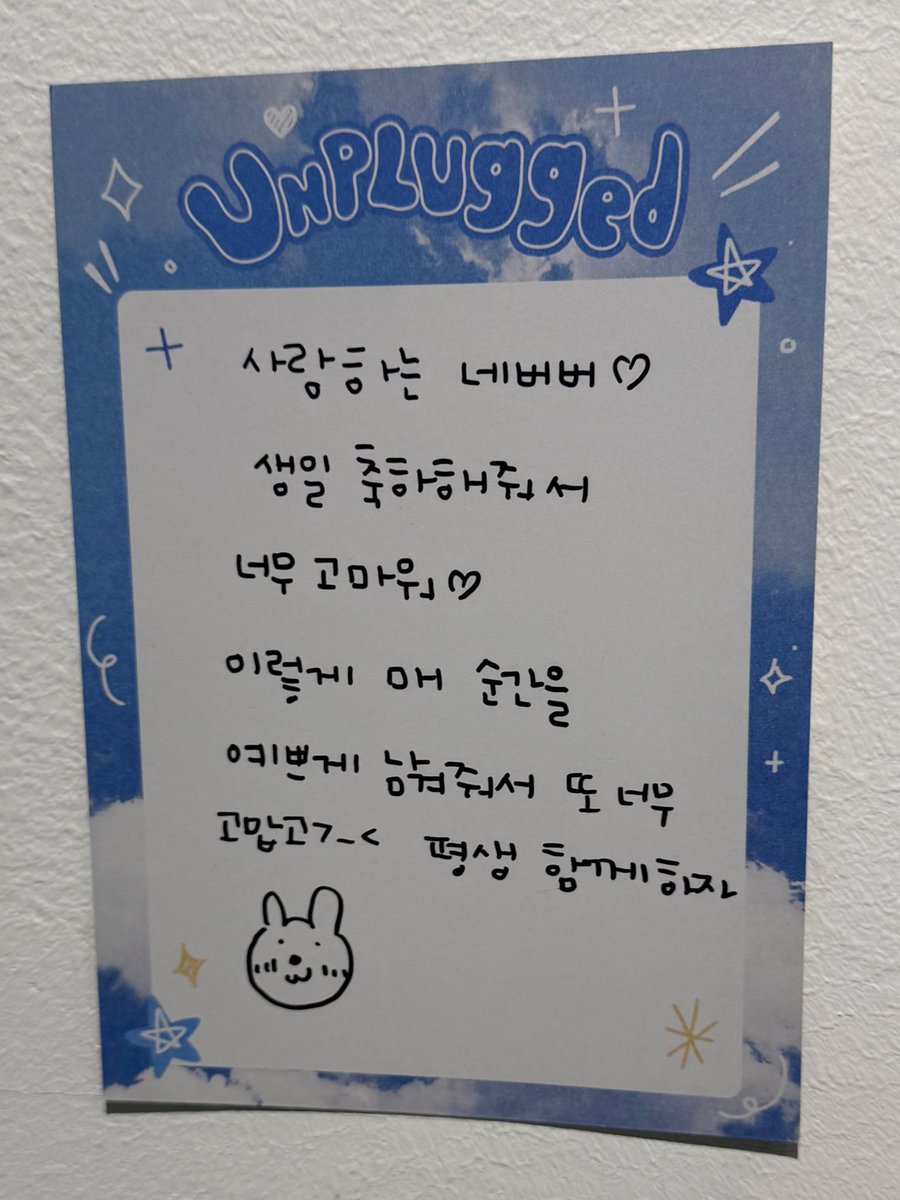 UNPLUgged
사랑하는 네버버♡
생일 축하해줘서
너무 고마워♡
이렇게 매 순간을
예쁜게 남겨줘서 또 너무
고맙고>_< 평생 함께하자